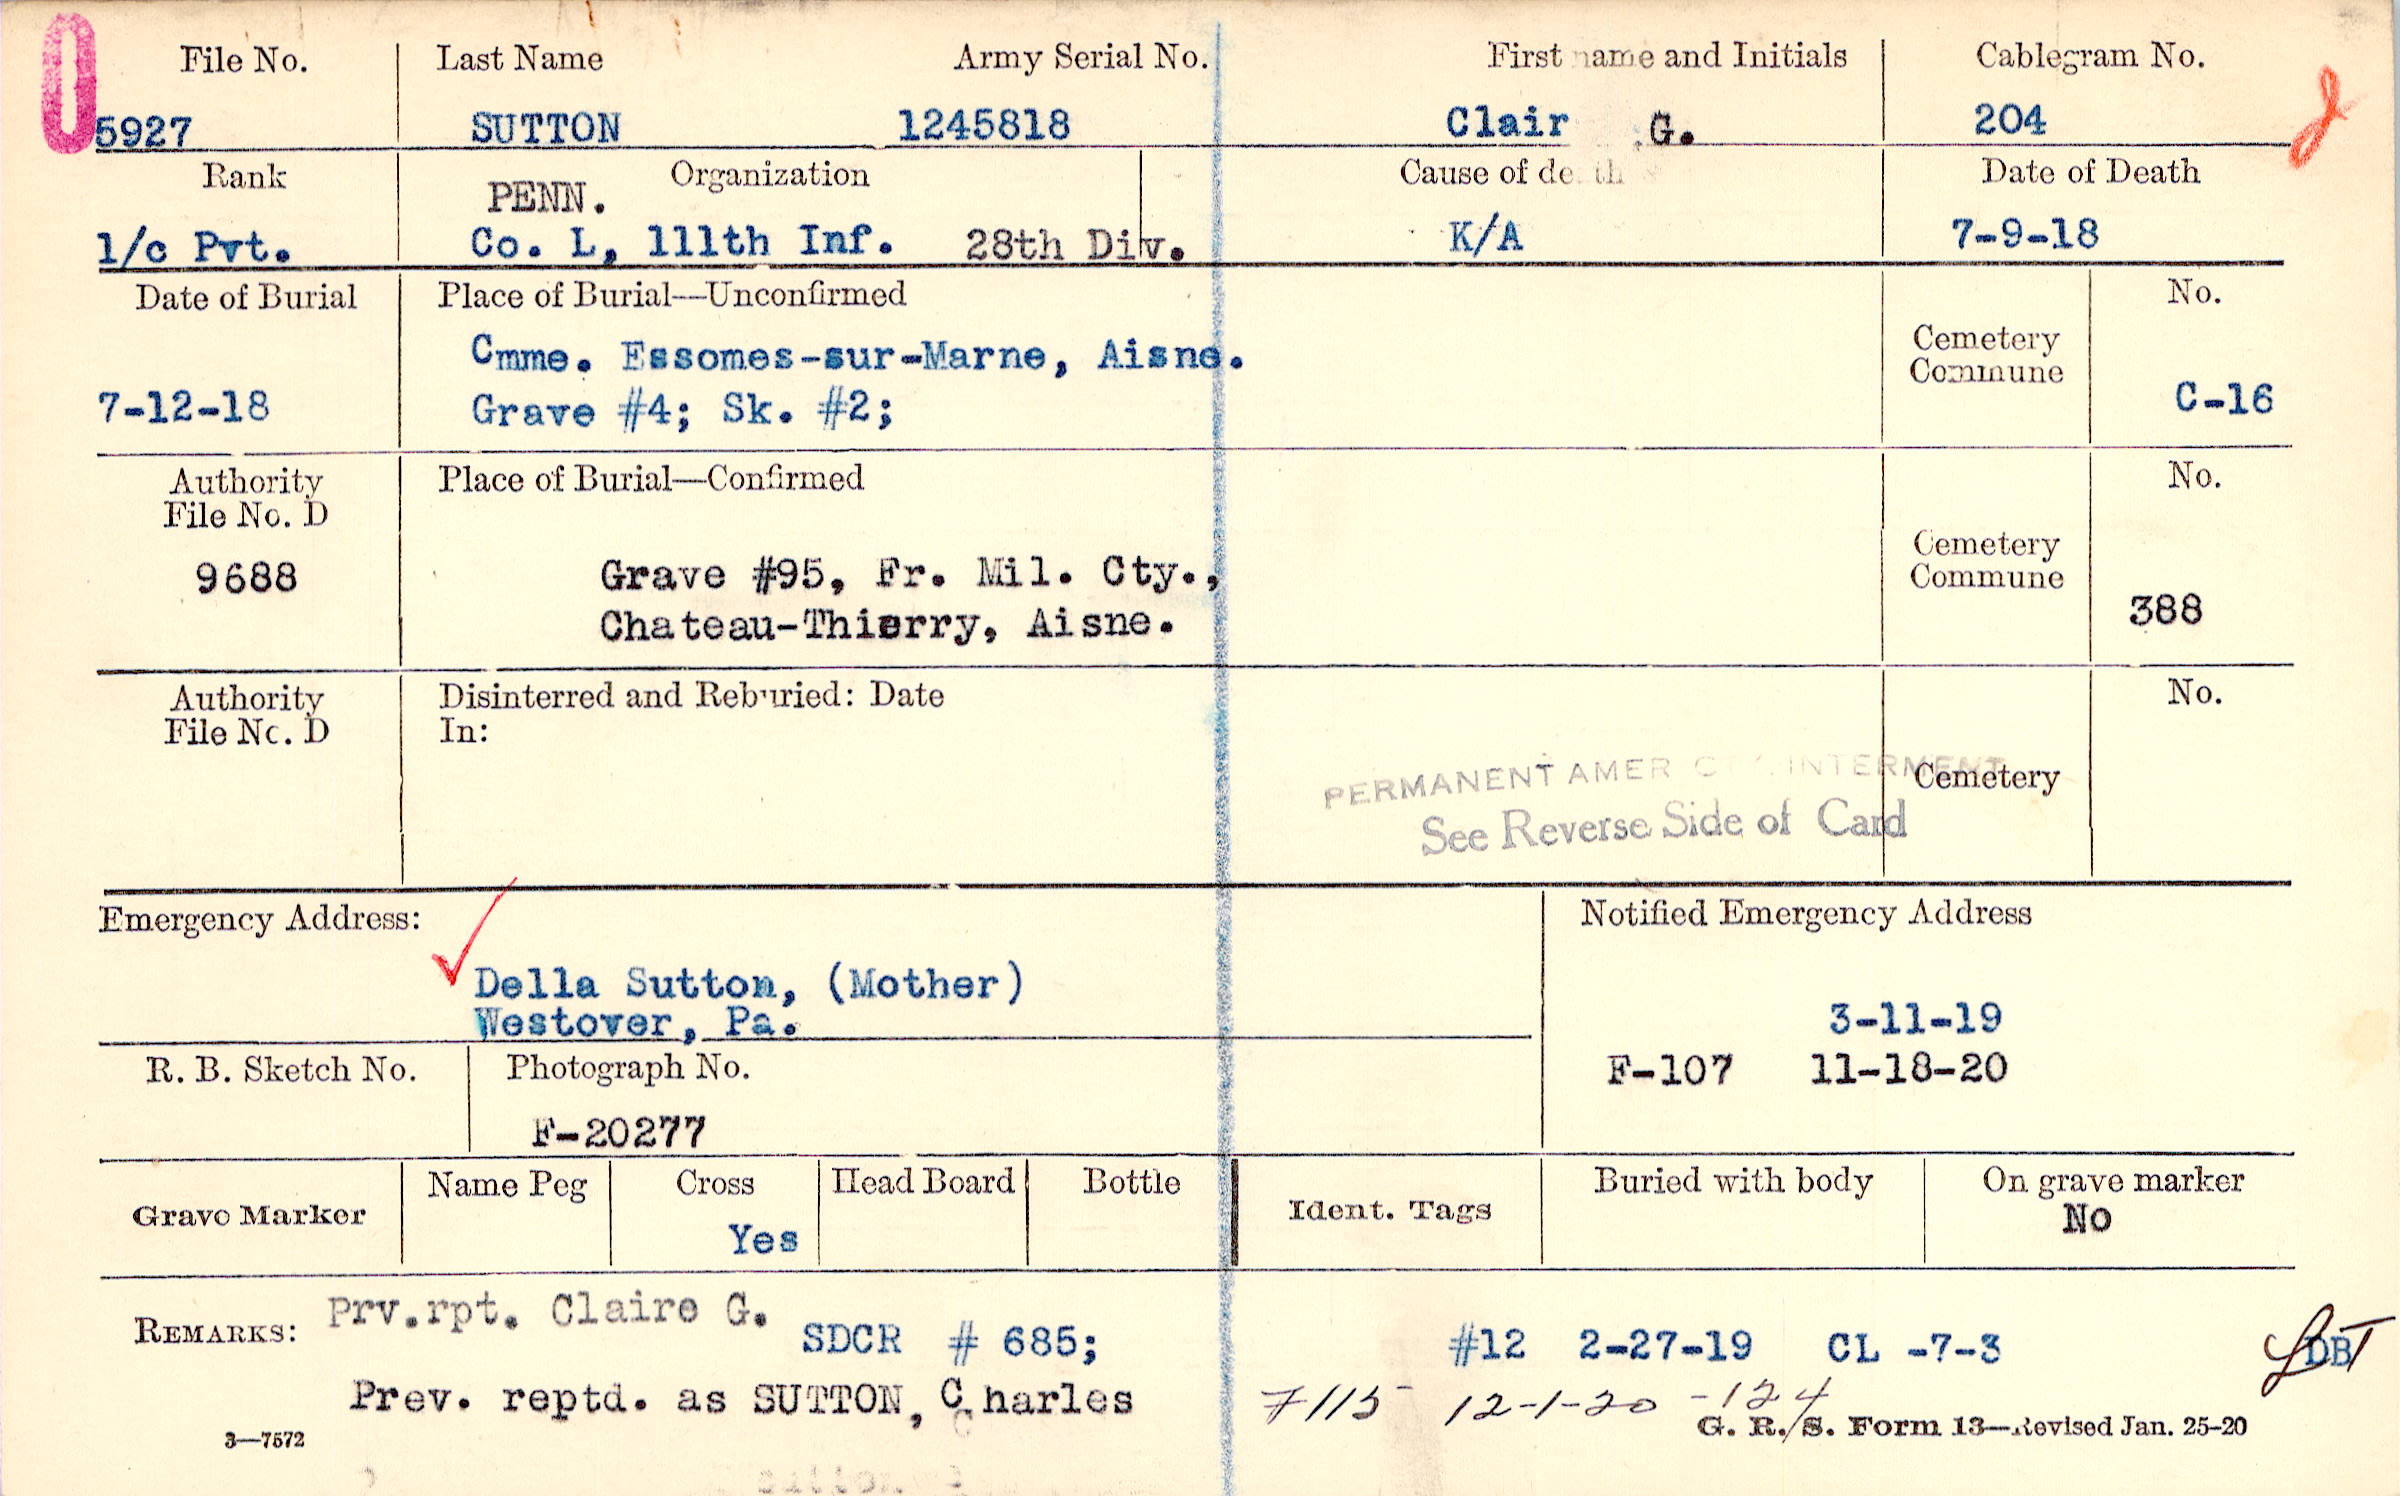 0
File No. Last Name Army Serial No. First name and Initials Cablegram No.
5927 SUTTON 1245818 Clair G. 204
Rank Organization Cause of death Date of Death
PENN.
1/c Pvt. Co. L, 111th Inf. 28th Div. K/A 7-9-18
Date of Burial Place of Burial—Unconfirmed No.
Cmme. Essomes-sur-Marne, Aisne. Cemetery
Commune
7-12-18 Grave #4; Sk. #2; C-16
Authority Place of Burial—Confirmed No.
File No. D
Cemetery
9688 Grave #95, Fr. Mil. Cty., Commune
Chateau-Thierry, Aisne. 388
Authority Disinterred and Reburied: Date No.
File No. D In:
PERMANENT AMER INTERMENT Cemetery
See Reverse Side of Card
Emergency Address: Notified Emergency Address
Della Sutton, (Mother)
Westover, Pa. 3-11-19
R. B. Sketch No. Photograph No. F-107 11-18-20
F-20277
Grave Marker Name Peg Cross Head Board Bottle Ident. Tags Buried with body On grave marker
Yes No
REMARKS: Prv.rpt. Claire G. SDCR # 685; #12 2-27-19 CL -7-3 DBT
Prev. reptd. as SUTTON, Charles 7115 12-1-20 -124
3—7572 G. R. S. Form 13—Revised Jan. 25-20